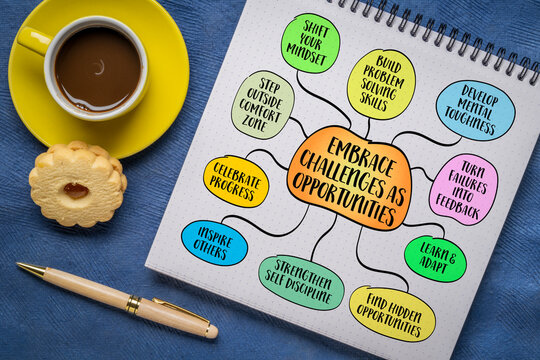 SHIFT
YOUR
MINDSET
BUILD
PROBLEM
SOLVING
SKILLS
DEVELOP
MENTAL
TOUGHNESS
STEP
OUTSIDE
COMFORT
ZONE
EMBRACE
CHALLENGES AS
OPPORTUNITIES
TURN
FAILURES
INTO
FEEDBACK
CELEBRATE
PROGRESS
INSPIRE
OTHERS
LEARN &
ADAPT
STRENGTHEN
SELF DISCIPLINE
FIND HIDDEN
OPPORTUNITIES